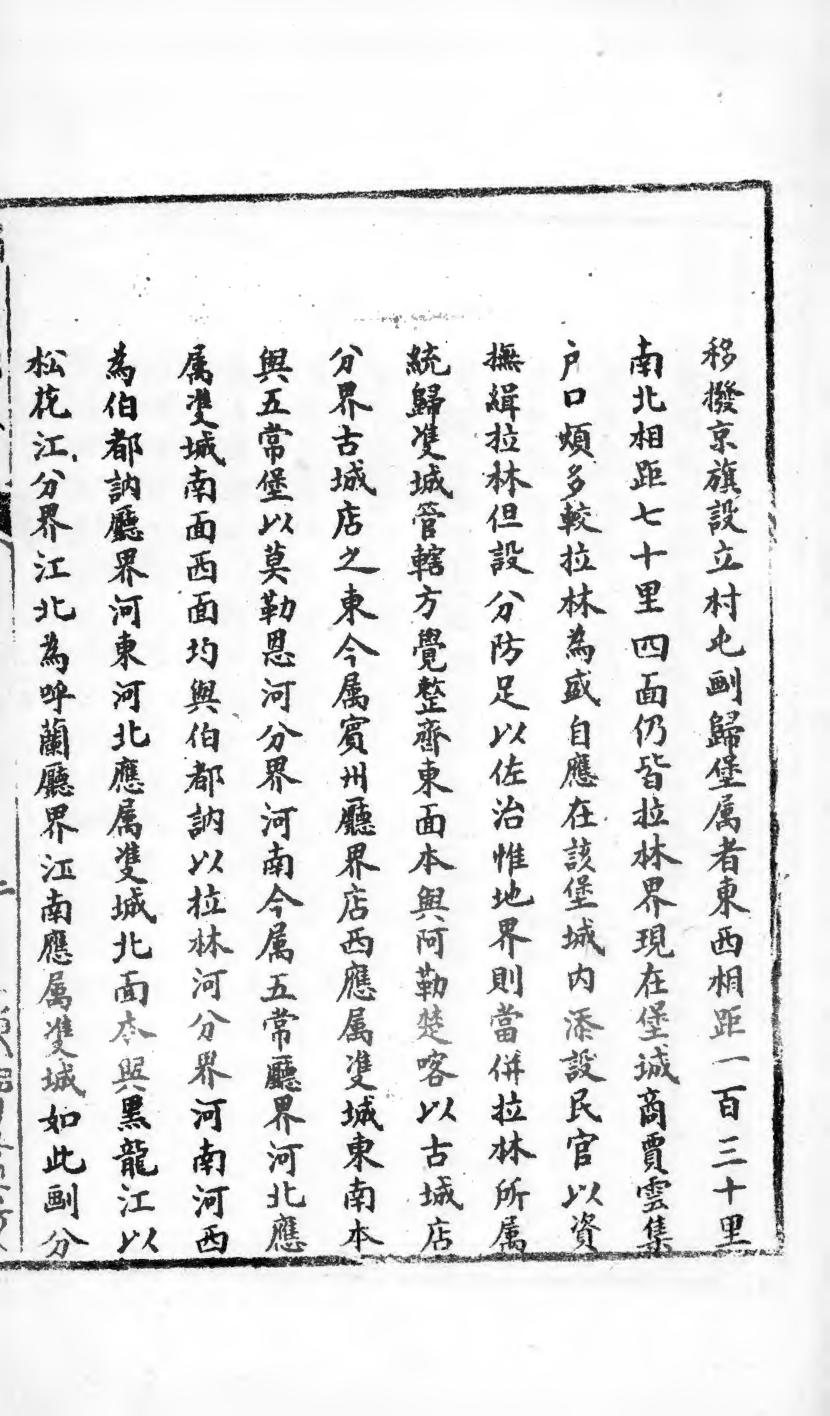 移撥京旗設立村屯劃歸堡属者東西相距一百三十里
南北相距七十里四面仍皆拉林界現在堡城商賈雲集
户口煩多較拉林為盛自應在該堡城内添設民官以資
撫緝拉林但設分防足以佐治惟地界則當併拉林所属
統歸雙城管轄方覺整齊東面本與阿勒楚喀以古城店
分界古城店之東今属賓州廳界店西應属雙城東南本
與五常堡以莫勒恩河分界河南今属五常廳界河北應
属雙城南面西面均與伯都訥以拉林河分界河南河西
為伯都訥廳界河東河北應属雙城北面本與黑龍江以
松花江分界江北為呼蘭廳界江南應属雙城如此劃分